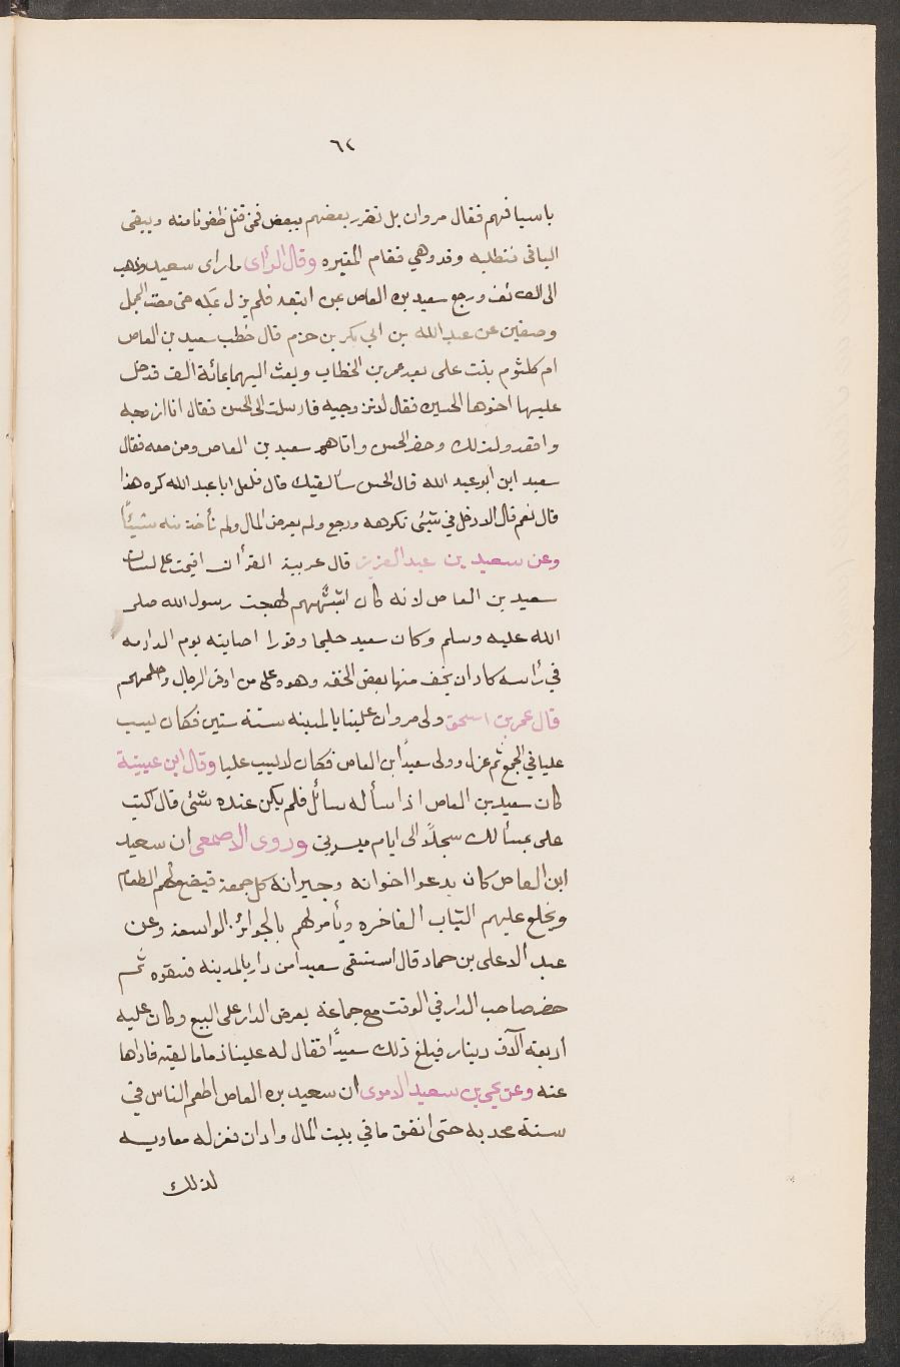 ٦٢
باسيافهم فقال مروان بل نضرب بعضهم ببعض فمن قتل ظفرنا منه ويبقى
الباقي فنطلبه وقد وهي فقام المغيره وقال الرأى ماراى سعيد وذهب
الى الطائف ورجع سعيد بن العاص بمن اتبعه فلم يزل بمكه حتى مضت الجمل
وصفين عن عبد الله بن ابي بكر بن حزم قال خطب سعيد بن العاص
ام كلثوم بنت على بعد عمر بن الخطاب وبعث اليهما بمائة الف فدخل
عليها اخوها الحسين فقال لا تزوجيه فارسلت الى الحسن فقال انا ازوجه
واتعدو لذلك وحضر الحسن واتاهم سعيد بن العاص ومن معه فقال
سعيد اين ابو عبد الله قال الحسن سأكفيك قال فلعل ابا عبد الله كره هذا
قال نعم قال لا ادخل في شئى تكرهه ورجع ولم يعرض المال ولم تأخذ منه شيئاً
وعن سعيد بن عبد العزيز قال عربية القرأن اقيمت على لسان
سعيد بن العاص لانه كان اشبههم لهجت رسول الله صلى
الله عليه وسلم وكان سعيد حليما وقورا اصابته يوم الدار مه
في رأسه كاد ان يخف منها بعض الخفه وهو على من اوفر الرجال وحلمهم
قال عمر بن اسحق ولى مروان علينا بالمدينه ستة ستين فكان يسب
عليا في الجمع ثم عزل وولى سعيد ابن العاص فكان لا يسب عليا وقال ابن عيينة
كان سعيد بن العاص اذا سأله سائل فلم يكن عنده شئى قال اكتب
على بمسألك سجلاً الى ايام ميسرتي وروى الاصمعى ان سعيد
ابن العاص كان يدعوا اخوانه وجيرانه كل جمعة فيضع لهم الطعام
ويخلع عليهم الثياب الفاخره ويأمر لهم بالجوائز الواسعة وعن
عبد الاعلى بن حماد قال استسقى سعيد من دار بالمدينه فسقوه ثم
حضر صاحب الدار في الوقت مع جماعة يعرض الدار على البيع وكان عليه
اربعة آلاف دينار فبلغ ذلك سعيداً فقال له علينا ذماما لسقيه فاداها
عنه وعن يحي بن سعيد الاموى ان سعيد بن العاص اطعم الناس في
سنة مجدبه حتى انفق ما في بيت المال وادان فعزله معاويه
لذلك